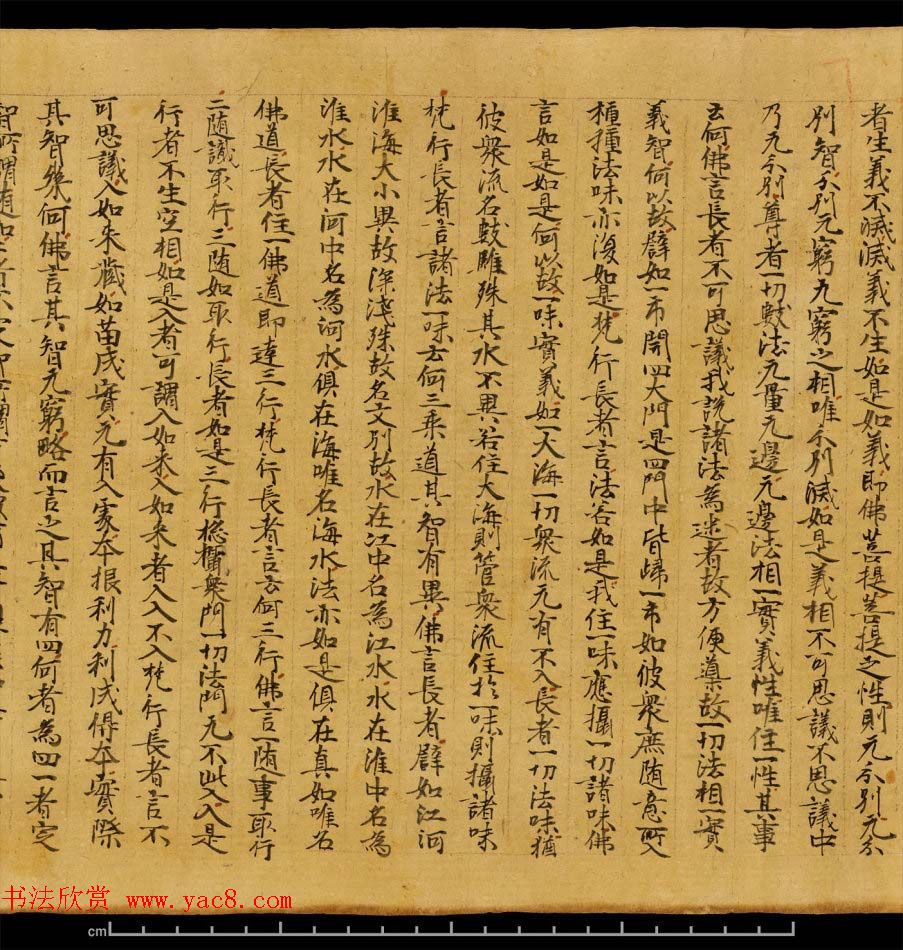 者生義不滅滅義不生如是如義即佛菩提菩提之性則无分別无分
別智分別无窮无窮之相唯分別滅如是義相不可思議不思議中
乃无分別尊者一切數法无量无邊无邊法相一實義性唯住一性其事
云何佛言長者不可思議我說諸法為迷者故方便導故一切法相一實
義智何以故譬如一市開四大門是四門中皆歸一市如彼衆庶随意所入
種種法味亦復如是梵行長者言法若如是我住一味應攝一切諸味佛
言如是如是何以故一味實義如一大海一切衆流无有不入長者一切法味猶
彼衆流名數雖殊其水不異若住大海則管衆流住於一味則攝諸味
梵行長者言諸法一味云何三乘道其智有異佛言長者譬如江河
淮海大小異故深淺殊故名文別故水在江中名為江水水在淮中名為
淮水水在河中名為河水俱在海唯名海水法亦如是俱在真如唯名
佛道長者住一佛道即達三行梵行長者言云何三行佛言一随事取行
二随識取行三随如取行長者如是三行揔攝衆門一切法門无不此入入是
行者不生空相如是入者可謂入如来入如来者入入不入梵行長者言不
可思議入如来藏如苗成實无有入處本根利力利成得本實際
其智幾何佛言其智无窮略而言之其智有四何者為四一者定
智所謂随如二者不定
书法欣赏 www.yac8.com
cm